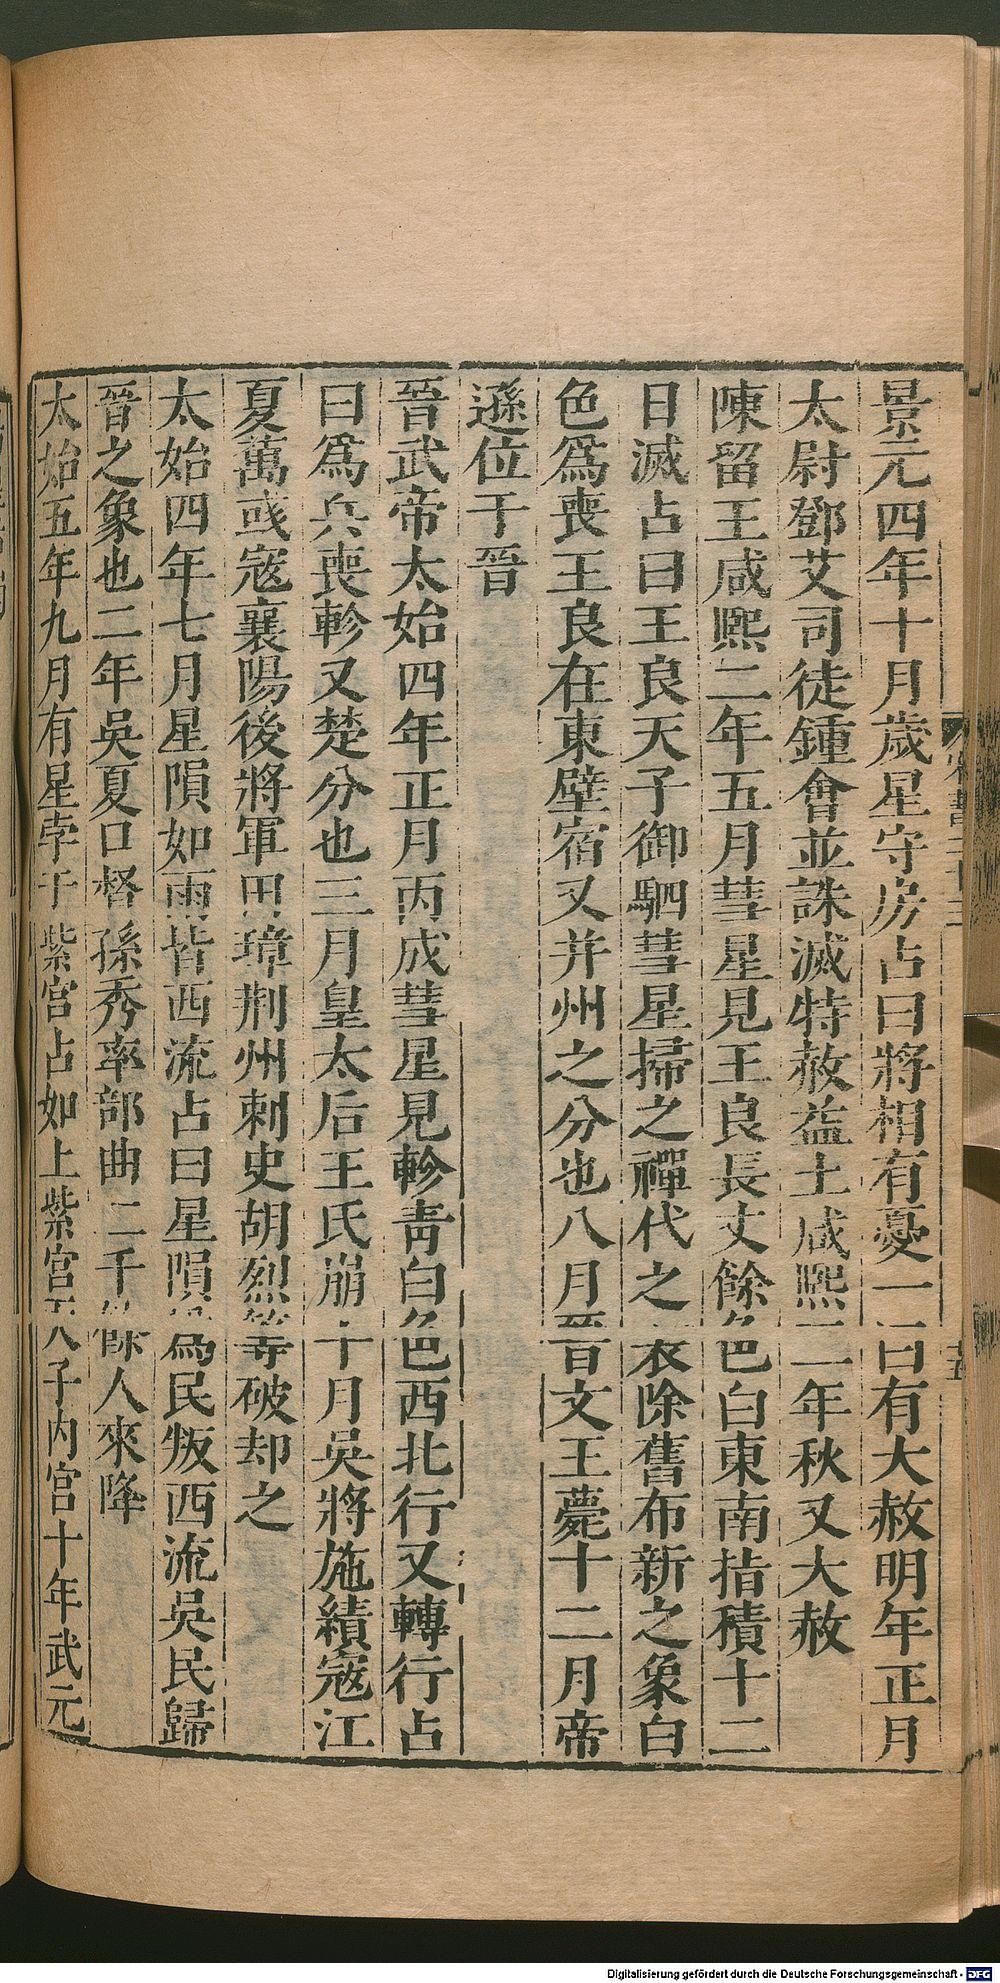 景元四年十月歲星守房占曰將相有憂一曰有大赦明年正月
太尉鄧艾司徒鍾會並誅滅特赦益土咸熙二年秋又大赦
陳留王咸熙二年五月彗星見王良長丈餘色白東南指積十二
日滅占曰王良天子御駟彗星掃之禪代之表除舊布新之象白
色爲喪王良在東壁宿又并州之分也八月晉文王薨十二月帝
遜位于晉
晉武帝太始四年正月丙戌彗星見軫青白色西北行又轉行占
曰爲兵喪軫又楚分也三月皇太后王氏崩十月吳將施績寇江
夏萬彧寇襄陽後將軍田璋荆州刺史胡烈等破却之
太始四年七月星隕如雨皆西流占曰星隕爲民叛西流吳民歸
晉之象也二年吳夏口督孫秀率部曲二千餘人來降
太始五年九月有星孛于紫宮占如上紫宮天子内宮十年武元
Digitalisierung gefördert durch die Deutsche Forschungsgemeinschaft - DFG